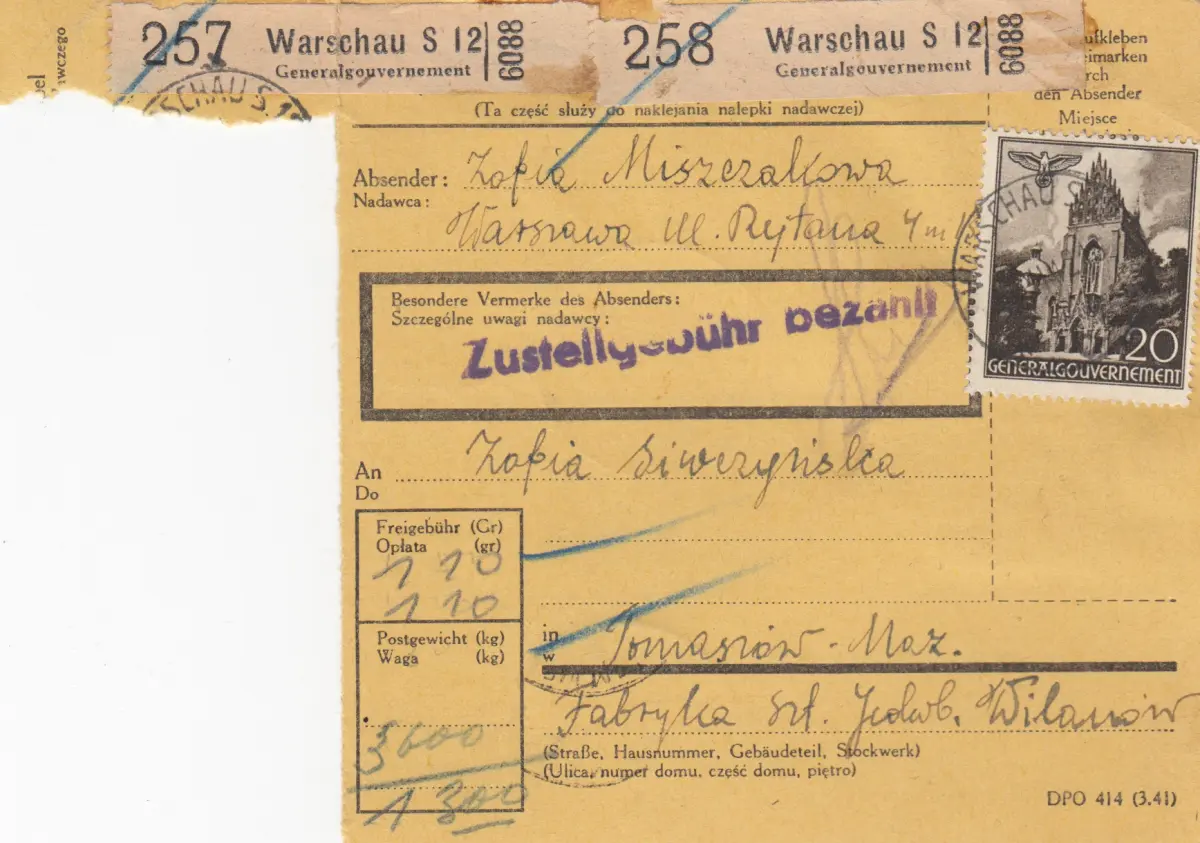 257 Warschau S 12 6088
Generalgouvernement
258 Warschau S 12 6088
Generalgouvernement
SCHAU S. 1
den Absender
Miejsce
(Ta część służy do naklejania nalepki nadawczej)
Absender: Zofia Miszczakowa
Nadawca:
Warszawa Ul. Rejtana 4 m
WARSCHAU S
20
GENERALGOUVERNEMENT
Besondere Vermerke des Absenders:
Szczególne uwagi nadawcy:
Zustellgebühr bezahlt
An Zofia Siwczyńska
Do
Freigebühr (Gr)
Opłata (gr)
1 10
1 10
Postgewicht (kg)
Waga (kg)
3600
1 300
in Tomaszów-Maz.
w
Fabryka Szt. Jedwb. Wilanów
(Straße, Hausnummer, Gebäudeteil, Stockwerk)
(Ulica, numer domu, część domu, piętro)
DPO 414 (3.41)